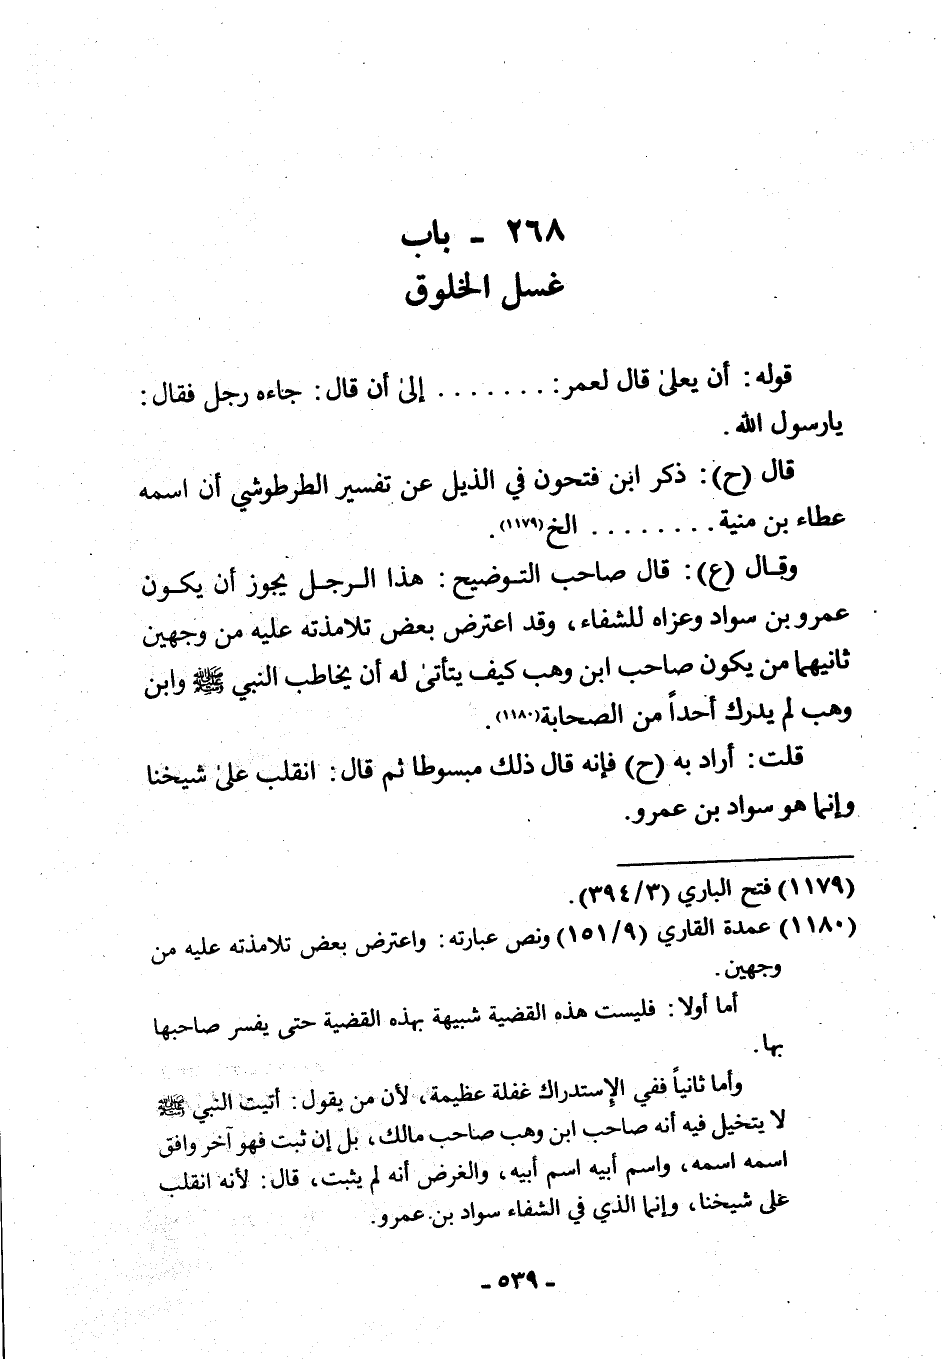 ٢٦٨ - باب
غسل الخلوق
قوله: أن يعلىٰ قال لعمر: ....... إلىٰ أن قال: جاءه رجل فقال:
يارسول الله.
قال (ح): ذكر ابن فتحون في الذيل عن تفسير الطرطوشي أن اسمه
عطاء بن منية........ الخ(١١٧٩).
وقال (ع): قال صاحب التوضيح: هذا الرجل يجوز أن يكون
عمرو بن سواد وعزاه للشفاء، وقد اعترض بعض تلامذته عليه من وجهين
ثانيهما من يكون صاحب ابن وهب كيف يتأتىٰ له أن يخاطب النبي ﷺ وابن
وهب لم يدرك أحداً من الصحابة(١١٨٠).
قلت: أراد به (ح) فإنه قال ذلك مبسوطا ثم قال: انقلب علىٰ شيخنا
وإنما هو سواد بن عمرو.
(١١٧٩) فتح الباري (٣/ ٣٩٤).
(١١٨٠) عمدة القاري (٩/ ١٥١) ونص عبارته: واعترض بعض تلامذته عليه من
وجهين.
أما أولا: فليست هذه القضية شبيهة بهذه القضية حتى يفسر صاحبها
بها.
وأما ثانياً ففي الإستدراك غفلة عظيمة، لأن من يقول: أتيت النبي ﷺ
لا يتخيل فيه أنه صاحب ابن وهب صاحب مالك، بل إن ثبت فهو آخر وافق
اسمه اسمه، واسم أبيه اسم أبيه، والغرض أنه لم يثبت، قال: لأنه انقلب
على شيخنا، وإنما الذي في الشفاء سواد بن عمرو.
- ٥٣٩ -